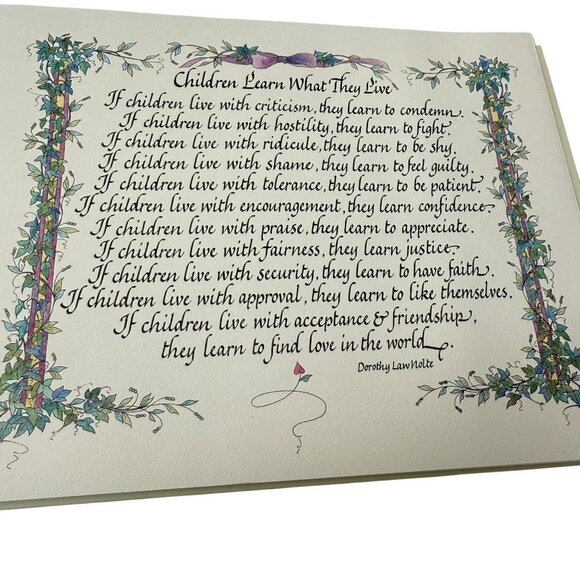 Children Learn What They Live
If children live with criticism, they learn to condemn.
If children live with hostility, they learn to fight.
If children live with ridicule, they learn to be shy.
If children live with shame, they learn to feel guilty.
If children live with tolerance, they learn to be patient.
If children live with encouragement, they learn confidence.
If children live with praise, they learn to appreciate.
If children live with fairness, they learn justice.
If children live with security, they learn to have faith.
If children live with approval, they learn to like themselves.
If children live with acceptance & friendship,
they learn to find love in the world.
Dorothy Law Nolte